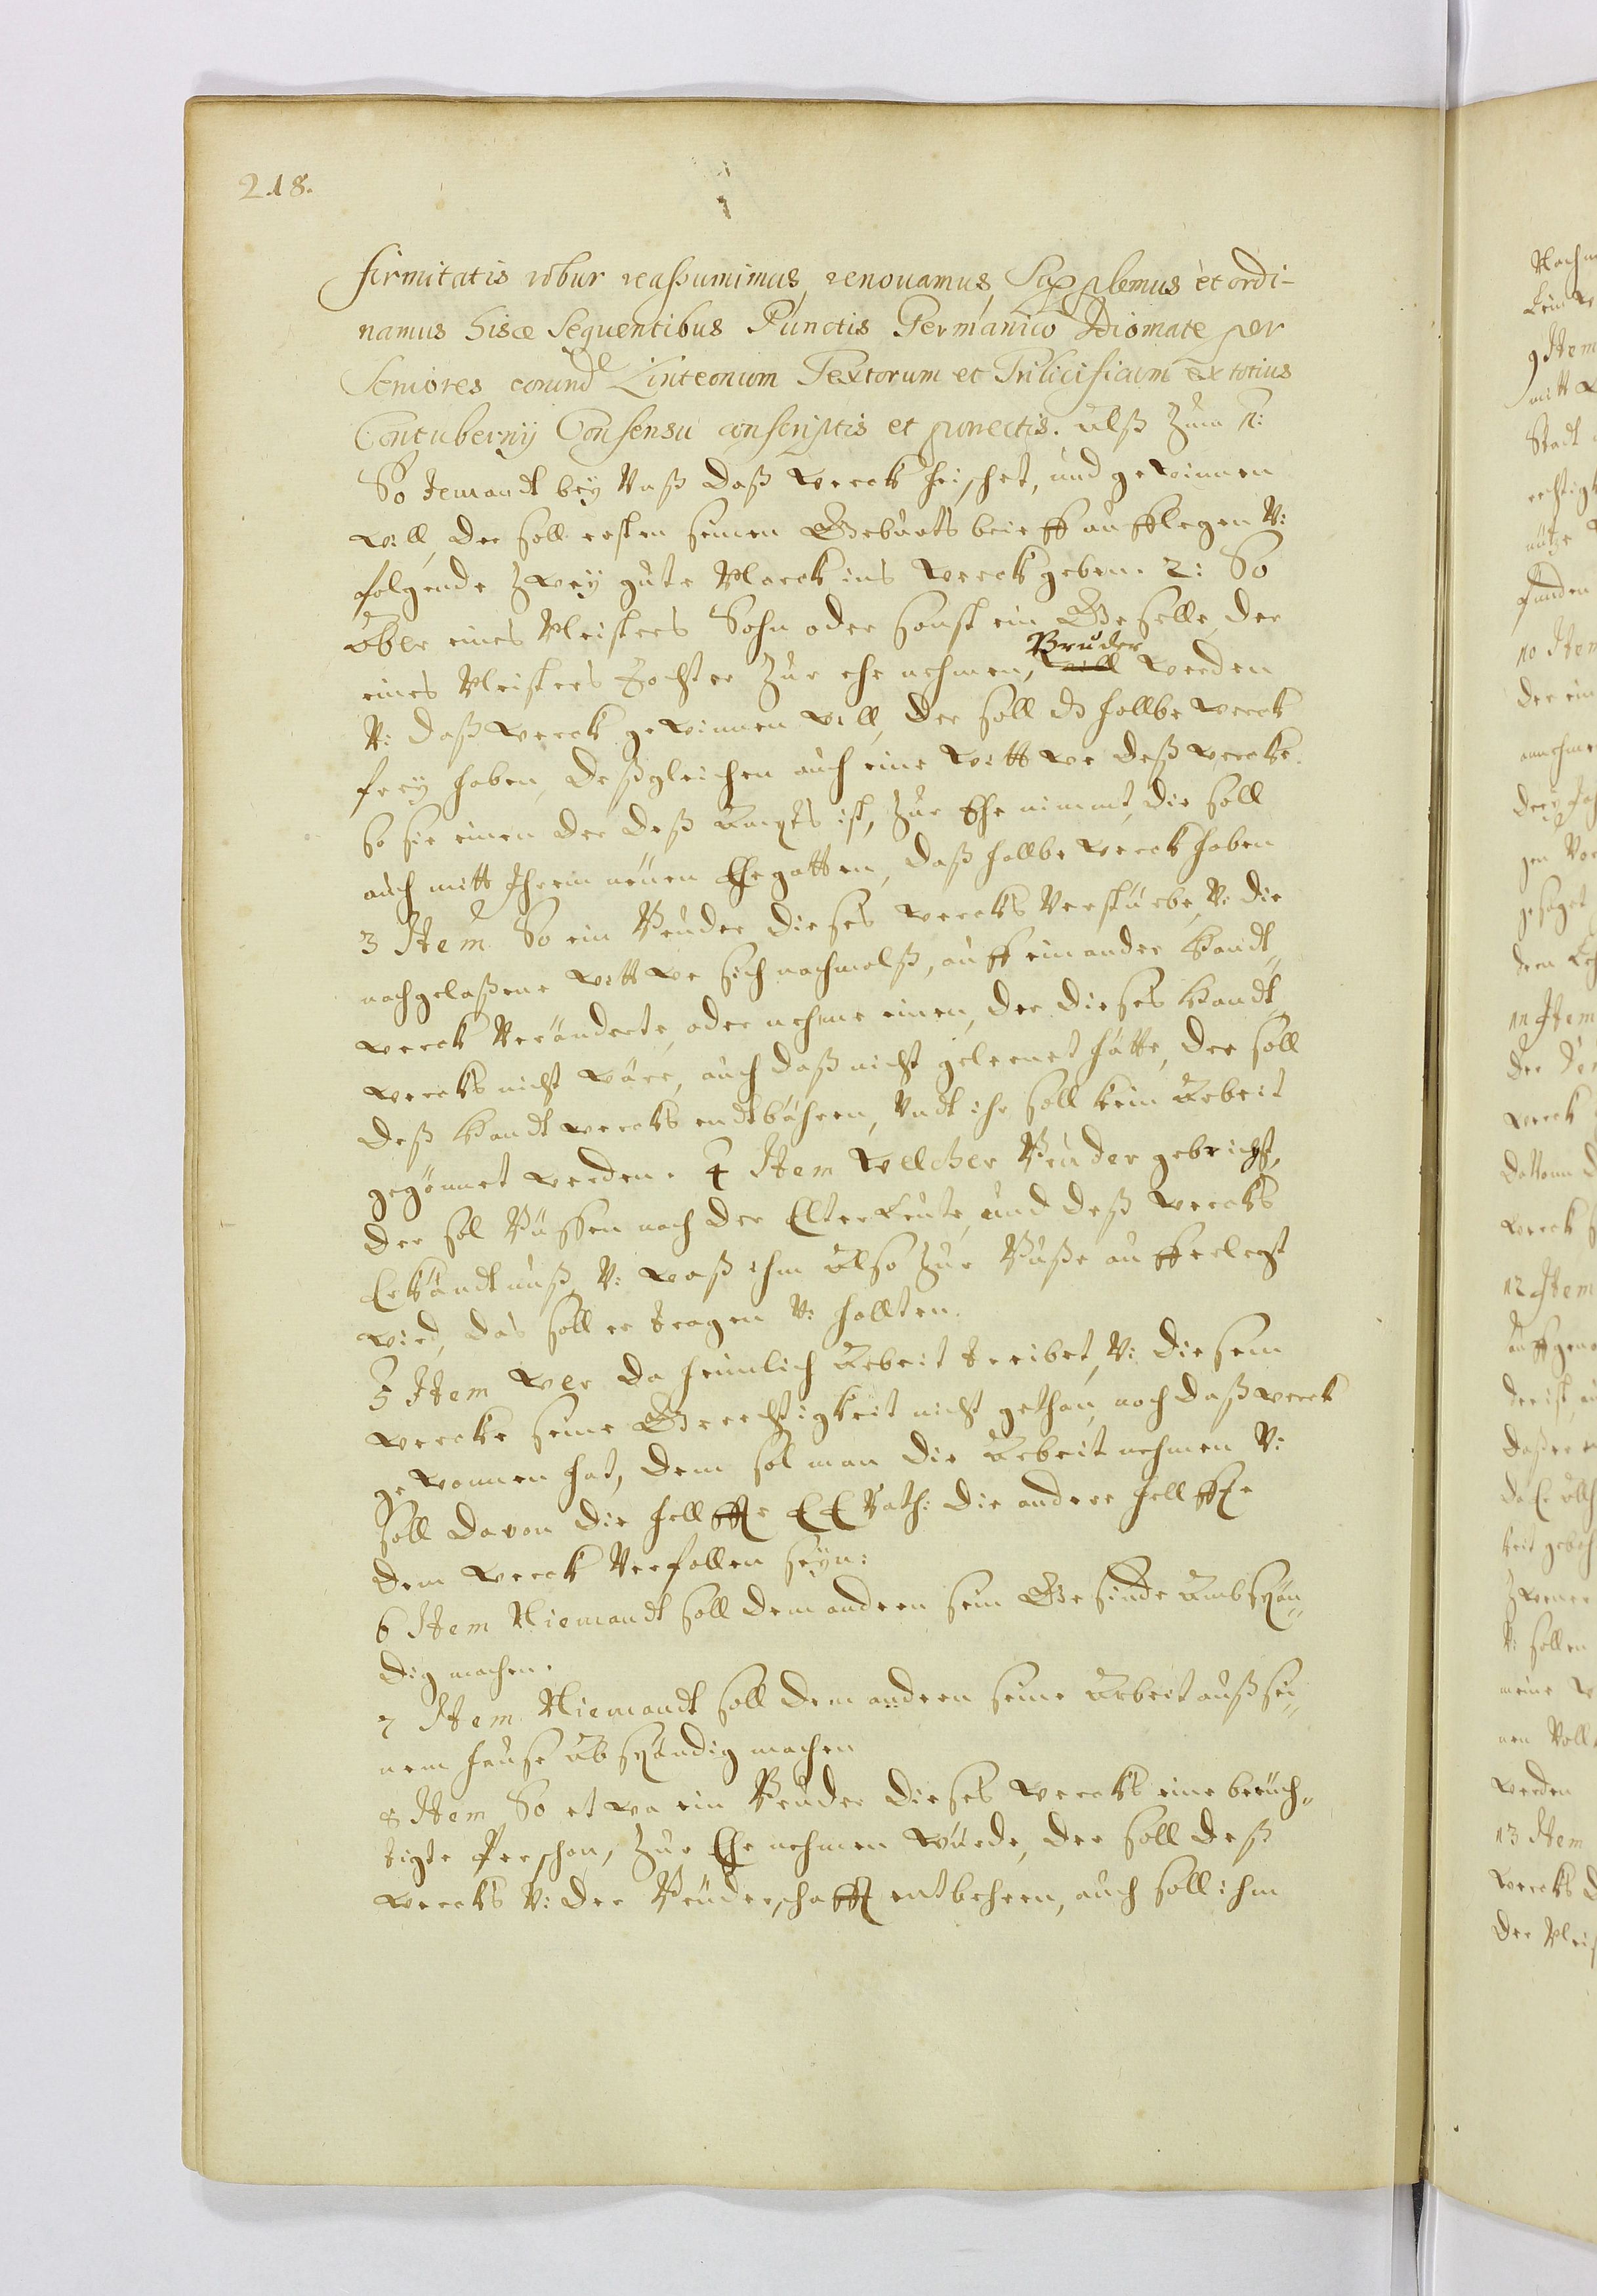 218.
firmitatis robur reassumimus, renovamus, Supplemus et ordi-
namus hisce sequentibus Punctis Germanico Idiomate per
Seniores eorund Linteonum Textorum et Trilicificum ex totius
Contubernij Consensu conscriptis et porrectis. Alß Zum 1:
So Jemandt bey Unß daß Werck heischet, und gewinnen
will, der soll ersten seinen Geburts brieff aufflegen V:
folgends zwey gute Marck ins Werck geben. 2: So
aber eines Meisters Sohn oder sonst ein Geselle, der
Bruder
eines Meisters Tochter zur ehe nehmen, will werden
V: daß werck gewinnen will, der soll d hallbe werck
frey haben, deßgleichen auch eine wittwe deß wercks.
so sie einen der deß Ampts ist, zur Ehe nimmt, die soll
auch mitt Ihrem neuen Ehegatten, daß hallbe werck haben
3 Item So ein Bruder dieses wercks Verstürbe V: die
nachgelaßene wittwe sich nachmalß, auff ein ander Handt„
werck Veränderte, oder nehme einen, der dieses Handt„
wercks nicht wäre, auch daß nicht gelernet hätte, der soll
deß Handtwercks endtbähren, Undt ihr soll kein Arbeit
gegönnet werden. 4 Item Welcher Bruder gebricht,
der sol Büssen nach der Elterleute, und deß wercks
Erkändtnuß V: waß ihm Also zur Buße aufferlegt
wird, das soll er tragen V: hallten.
5 Item Wer da heimlich Arbeit treibet, V: diesem
wercke seine Gerechtigkeit nicht gethan, noch daß werck
gewonnen hat, dem sol man die Arbeit nehmen V:
soll davon die hellffte EE Rath: die andere hellffte
dem Werck Verfallen seyn:
6 Item Niemandt soll dem andern sein Gesinde Umbstän„
dig machen.
7 Item Niemandt soll dem andern seine Arbeit auß sei„
nem hause Abständig machen
8 Item So etwa ein Bruder dieses Wercks eine berüch„
tigte Persohn, zur Ehe nehmen würde, der soll deß
wercks V: der Brüderschafft entbehren, auch soll ihm
9 Item
Stadt
funden
10 Item
der ein
11 Item
werck
12 Item
werden
13 Item
wercks